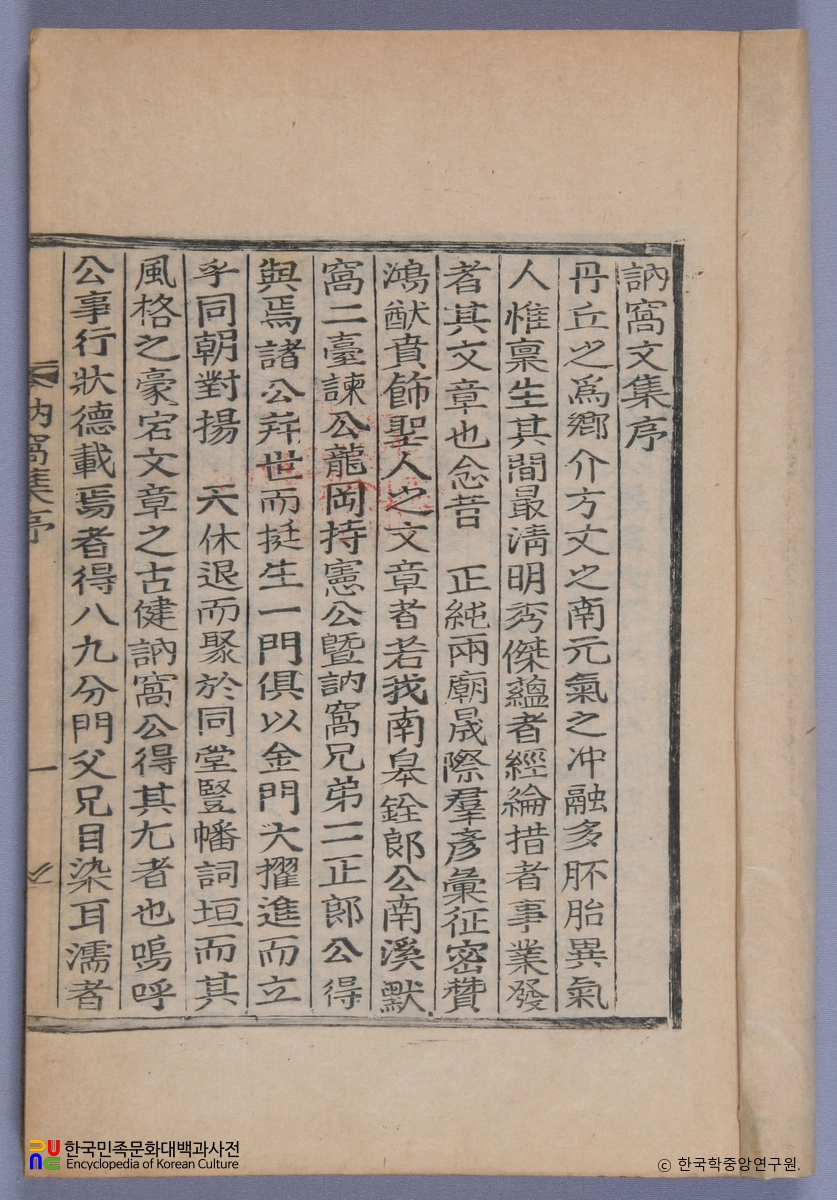 訥窩文集序
丹丘之為鄉介方丈之南元氣之冲融多胚胎異氣
人惟稟生其間最淸明秀傑蘊者經綸措者事業發
者其文章也念昔 正純兩廟晟際羣彦彙征密贊
鴻猷賁餙聖人之文章者若我南皐銓郞公南溪默
窩二臺諫公龍岡持憲公曁訥窩兄弟二正郞公得
與焉諸公并世而挺生一門俱以金門大擢進而立
乎同朝對揚 天休退而聚於同堂豎幡詞垣而其
風格之豪宕文章之古健訥窩公得其尤者也嗚呼
公事行狀德載焉者得八九分門父兄目染耳濡者
訥窩集序
一
한국민족문화대백과사전
Encyclopedia of Korean Culture
© 한국학중앙연구원.